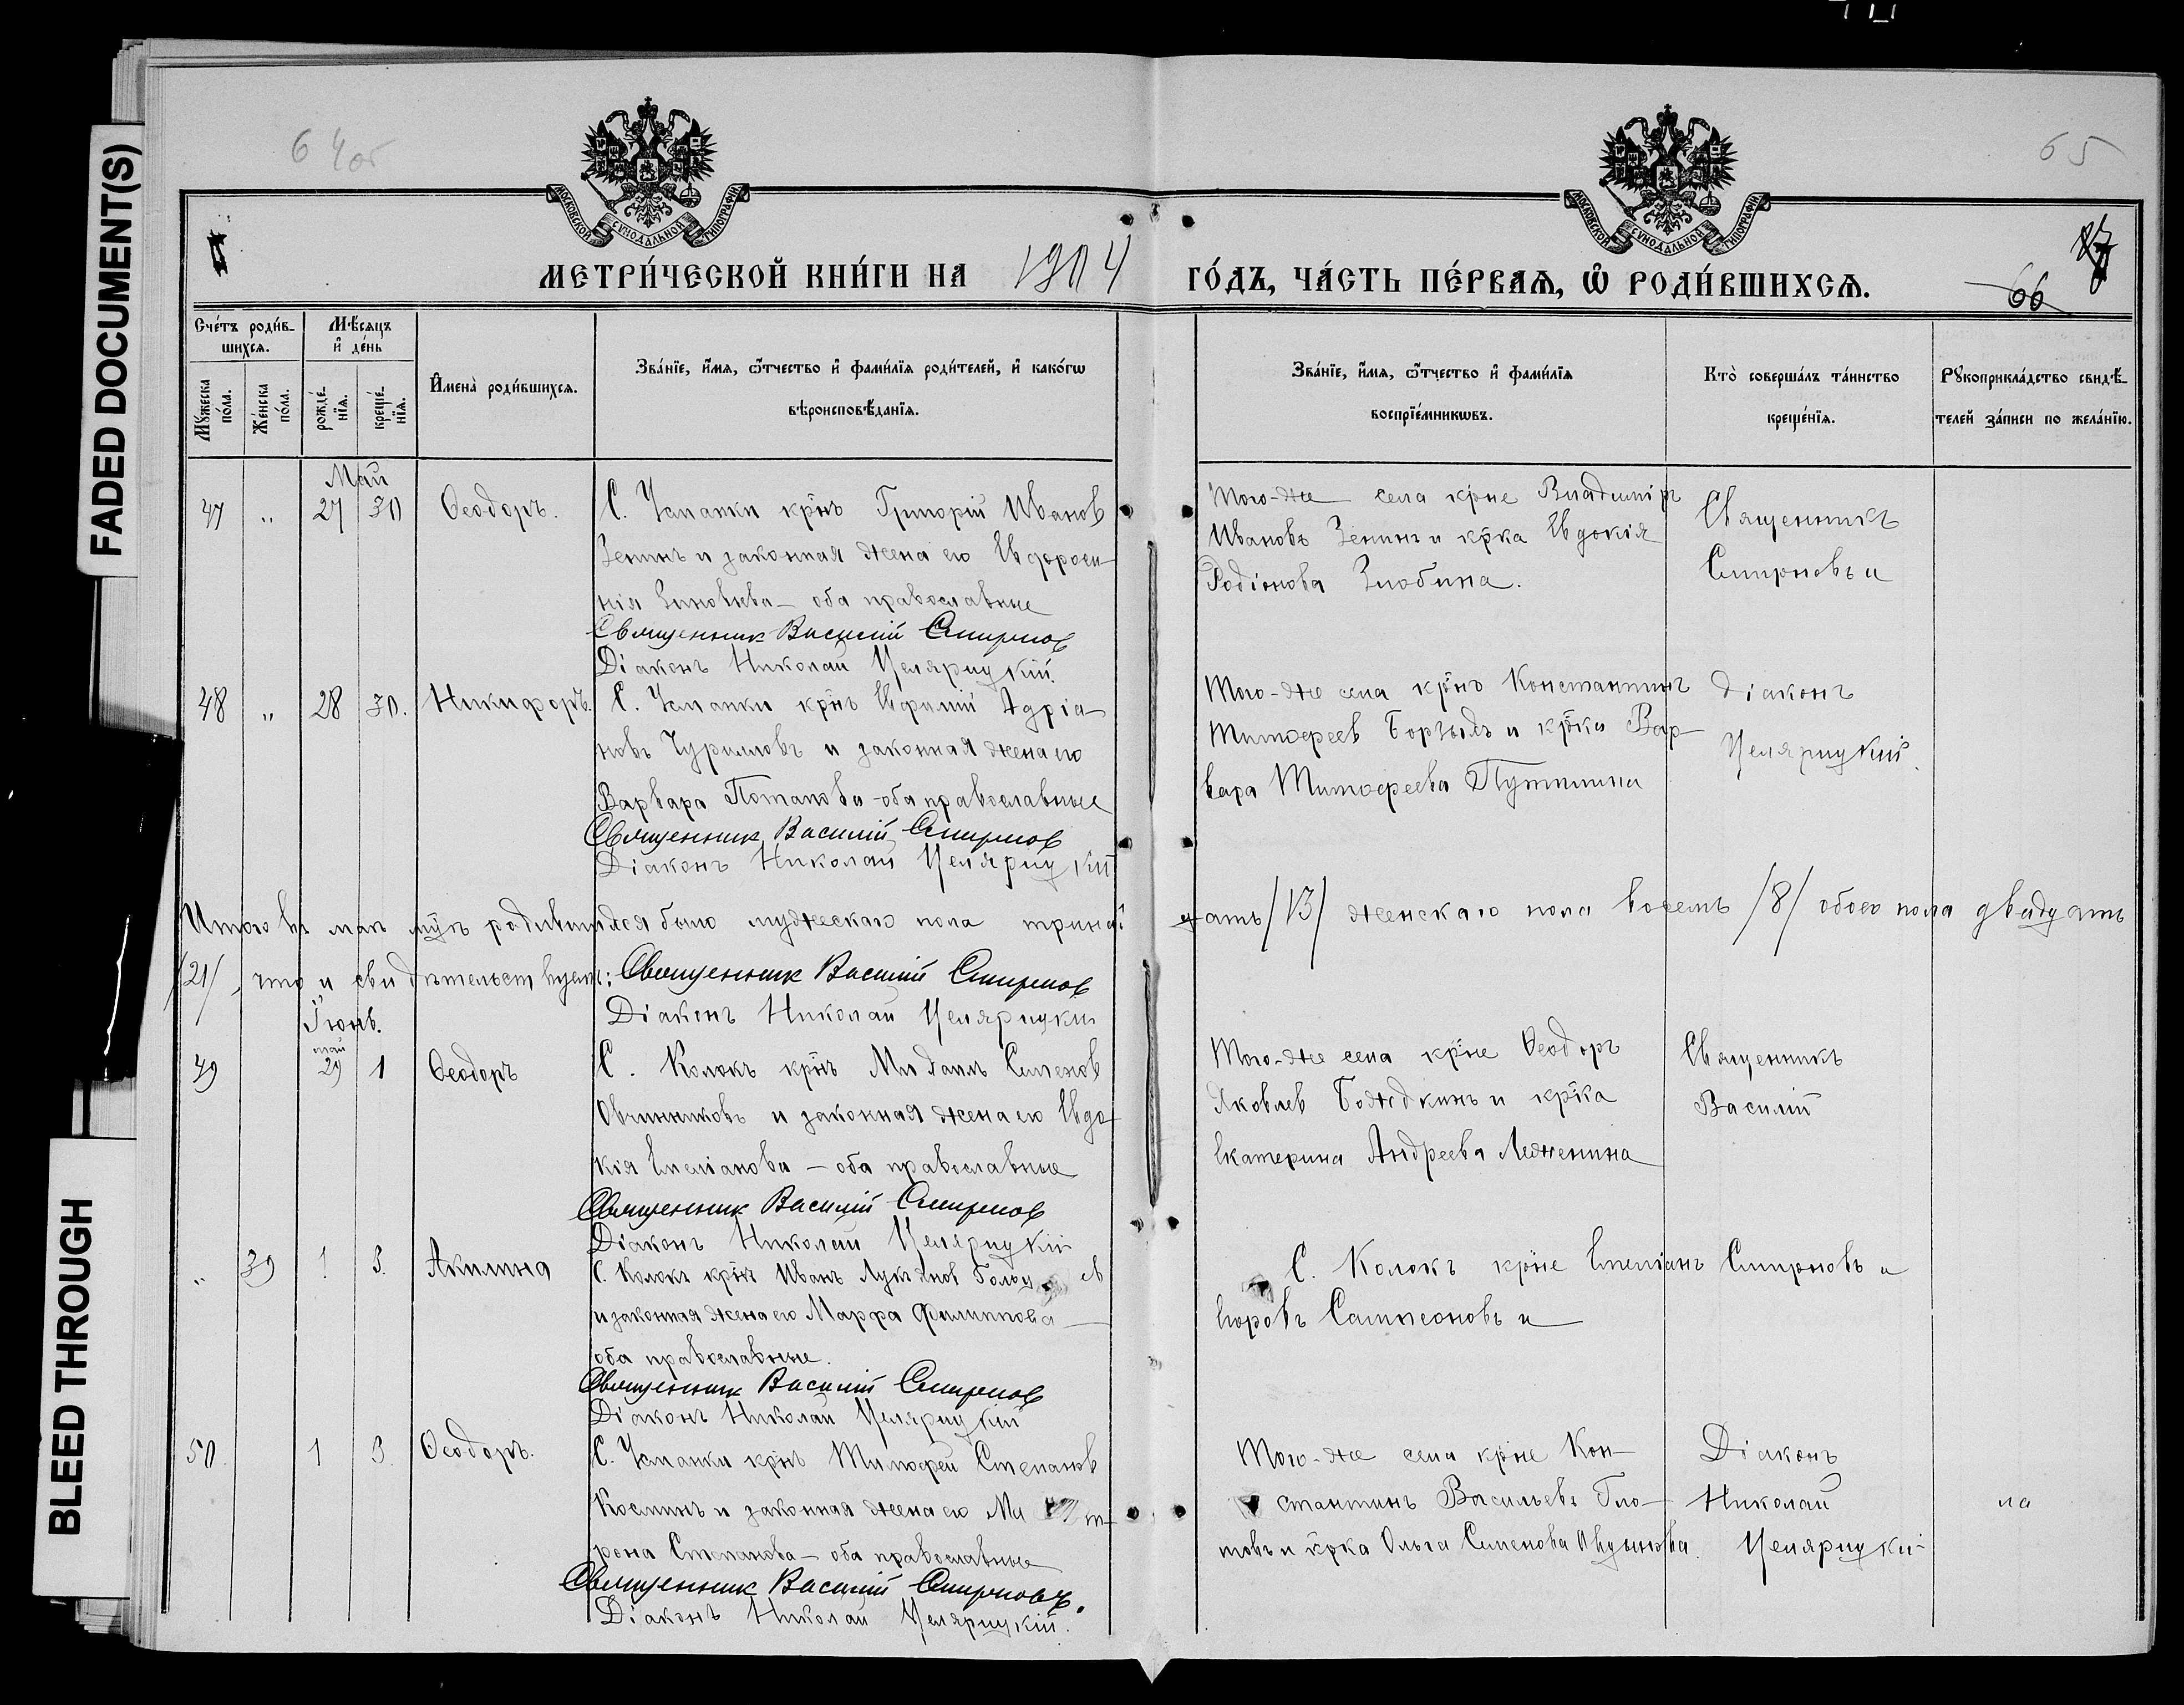 FADED DOCUMENT(S)
BLEED THROUGH
64об
65
МОСКОВСКОЙ СѴНОДАЛЬНОЙ ТИПОГРАФІИ
МОСКОВСКОЙ СѴНОДАЛЬНОЙ ТИПОГРАФІИ
МЕТРИ́ЧЕСКОЙ КНИ́ГИ НА 1904 ГО́ДЪ, ЧА́СТЬ ПЕ́РВАѦ, Ѡ҆ РОДИ́ВШИХСѦ.
66
Сче́тъ роди́в-
шихсѧ.
Мꙋ́жеска по́ла.
Же́нска по́ла.
Мѣ́сѧцъ
и҆ де́нь
рожде́-
нїѧ.
креще́-
нїѧ.
И҆мена̀ роди́вшихсѧ.
Зва́нїе, и҆́мѧ, ѻ҆́тчество и҆ фами́лїѧ роди́телей, и҆ како́гѡ
вѣроисповѣ́данїѧ.
Зва́нїе, и҆́мѧ, ѻ҆́тчество и҆ фами́лїѧ
воспрїе́мникѡвъ.
Кто̀ соверша́лъ та́инство
креще́нїѧ.
Рꙋкоприкла́дство свидѣ́-
телей за́писи по жела́нїю.
Май
47 " 27 30 Ѳеодоръ.
С. Усманки крнъ Григорій Иванов
Зенинъ и законная жена его Евфроси-
нія Зиновьева - оба православные
Священник Василій Смирнов
Діаконъ Николай Целярицкій.
Того-же села крне Владиміръ
Ивановъ Зенинъ и крка Евдокія
Родіонова Злобина.
Священникъ
Смирновъ и
48 " 28 30. Никифоръ.
С. Усманки крнъ Ефимій Адріа-
новъ Чурилловъ и законная жена его
Варвара Потапова - оба православные
Священник Василій Смирнов
Діаконъ Николай Целярицкій
Того-же села крнъ Константинъ
Тимофеев и крка Вар-
вара Тимофеева
Діаконъ
Целярицкій.
Итого въ мае родившихся было мужескаго пола тринад-
цать /13/ женскаго пола восемь /8/ обоего пола двадцать
/21/, что и свидѣтельствуетъ: Священник Василій Смирнов
Діаконъ Николай Целярицкій
Іюнь.
май
49 29 1 Ѳеодоръ
С. Колокъ крнъ Михаилъ Семенов
Овчинниковъ и законная жена его Евдо-
кія Емеліанова - оба православные
Священник Василій Смирнов
Діаконъ Николай Целярицкій
Того-же села крне Ѳеодоръ
Яковлев и крка
Екатерина Андреева Леженина
Священникъ
Василій
" 39 1 3. Акилина
С. Колокъ крнъ Иванъ Лукъянов
и законная жена его Марфа Филиппова -
оба православные.
Священник Василій Смирнов
Діаконъ Николай Целярицкій
С. Колокъ крне Емеліанъ
Егоровъ Сампсоновъ и
Смирновъ и
50. 1 3. Ѳеодоръ.
С. Усманки крнъ Тимофей Степанов
Косминъ и законная жена его Мат-
рона Степанова - оба православные
Священник Василій Смирновъ.
Діаконъ Николай Целярицкій.
Того-же села крне Кон-
стантинъ Васильевъ Гло-
товъ и крка Ольга Семенова
Діаконъ
Николай
Целярицкій